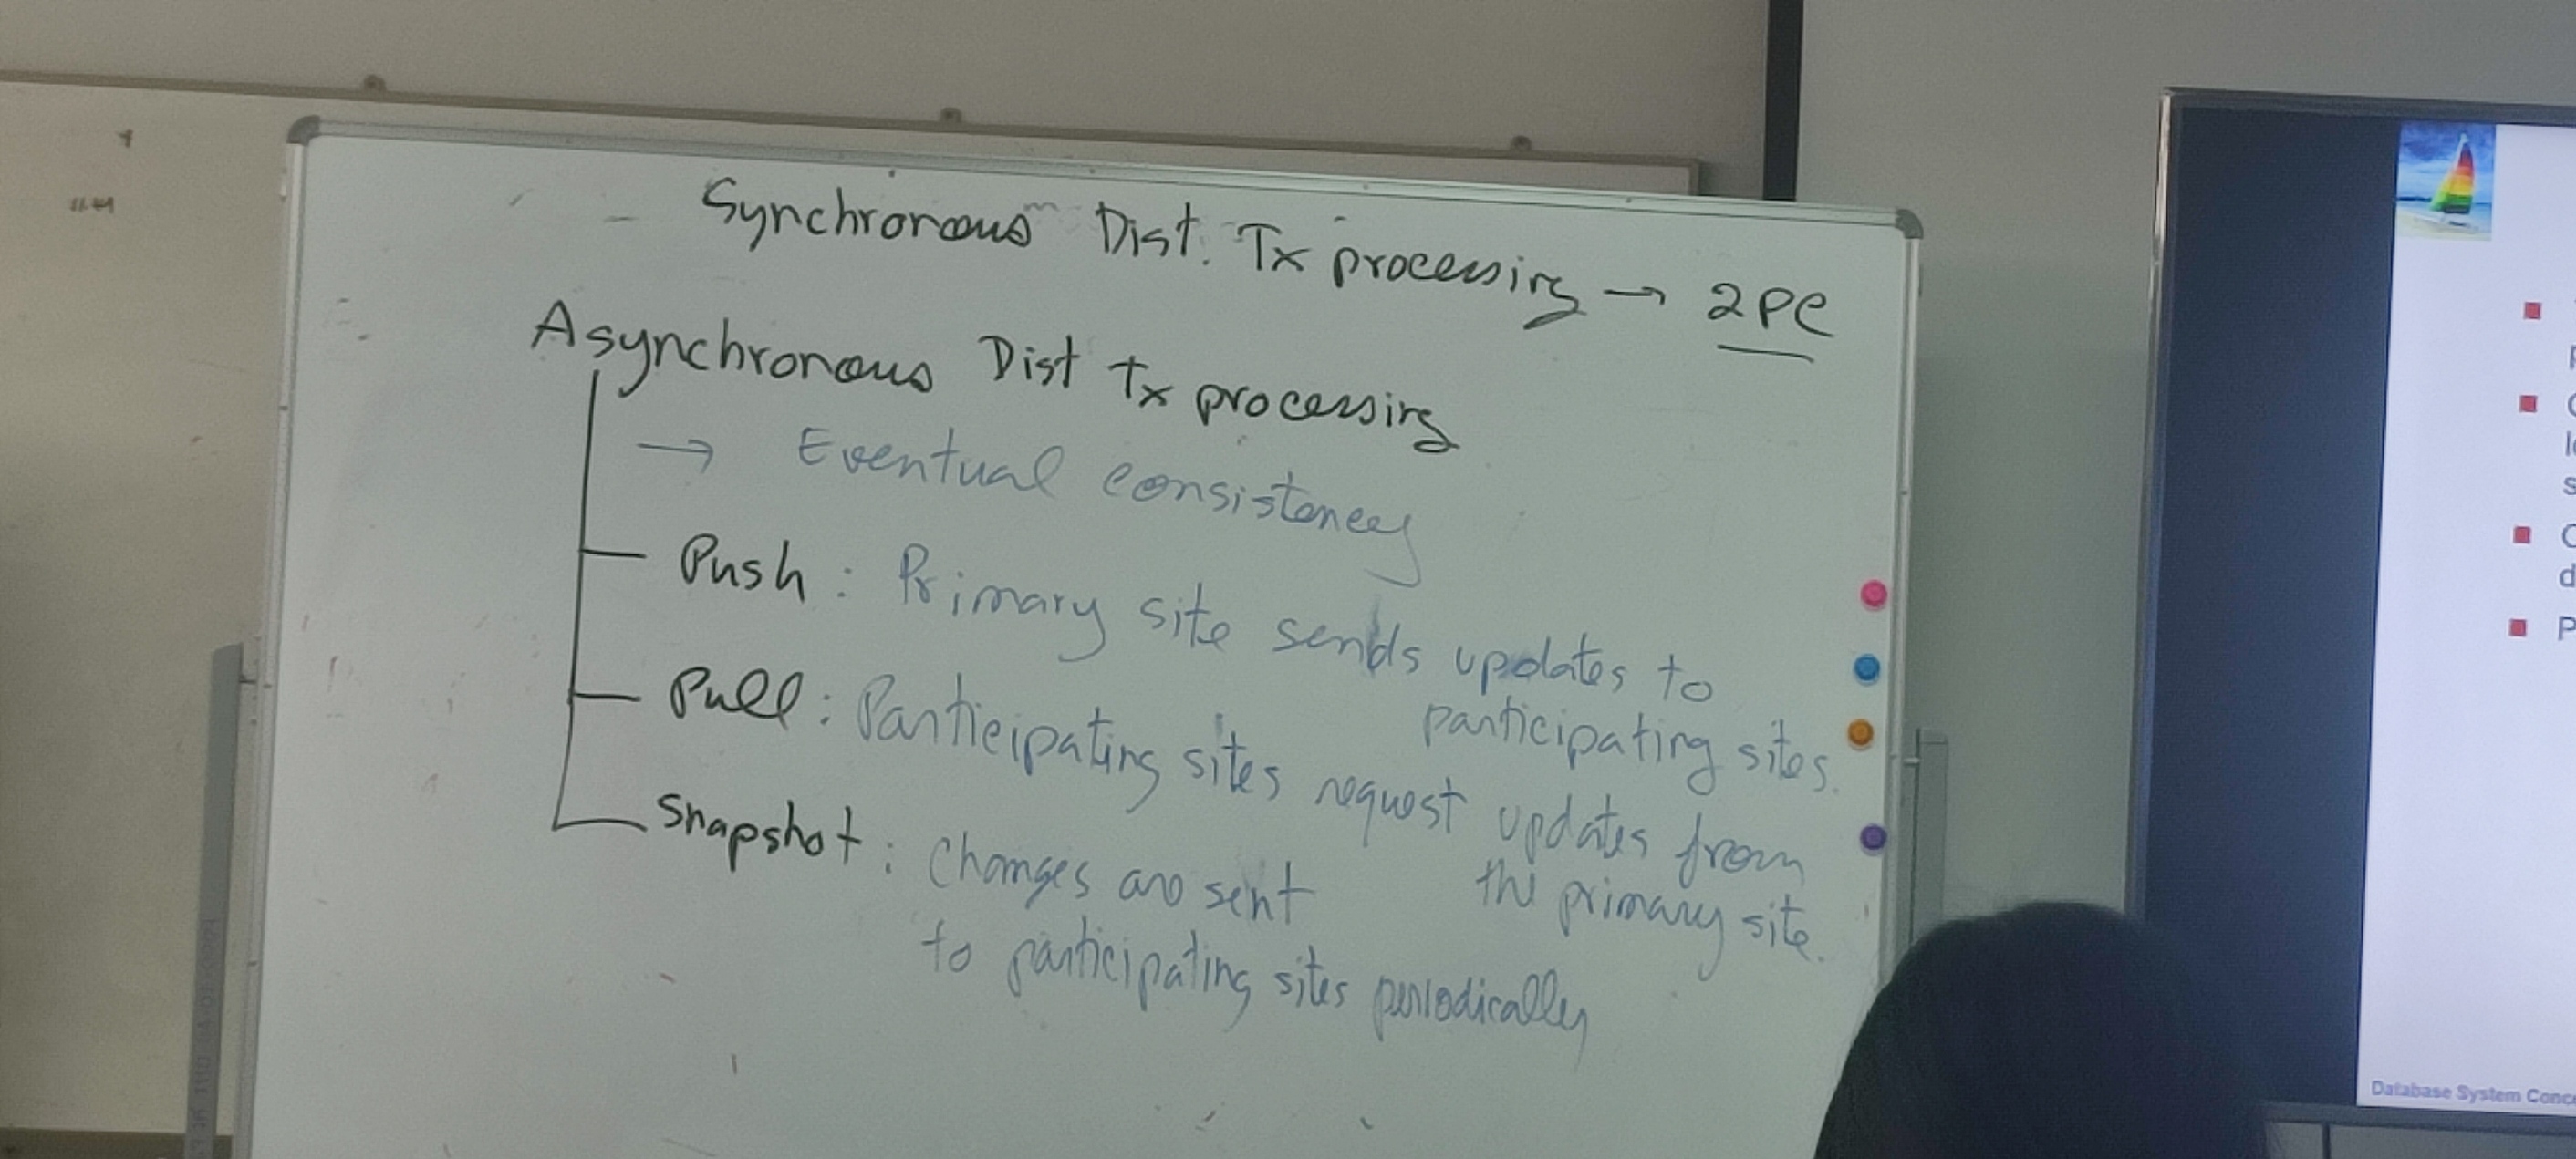 Synchronous Dist. Tx processing → 2PC
Asynchronous Dist Tx processing
→ Eventual consistency
Push : Primary site sends updates to
participating sites.
Pull : Participating sites request updates from
the primary site.
Snapshot : Changes are sent
to participating sites periodically
Database System Conce